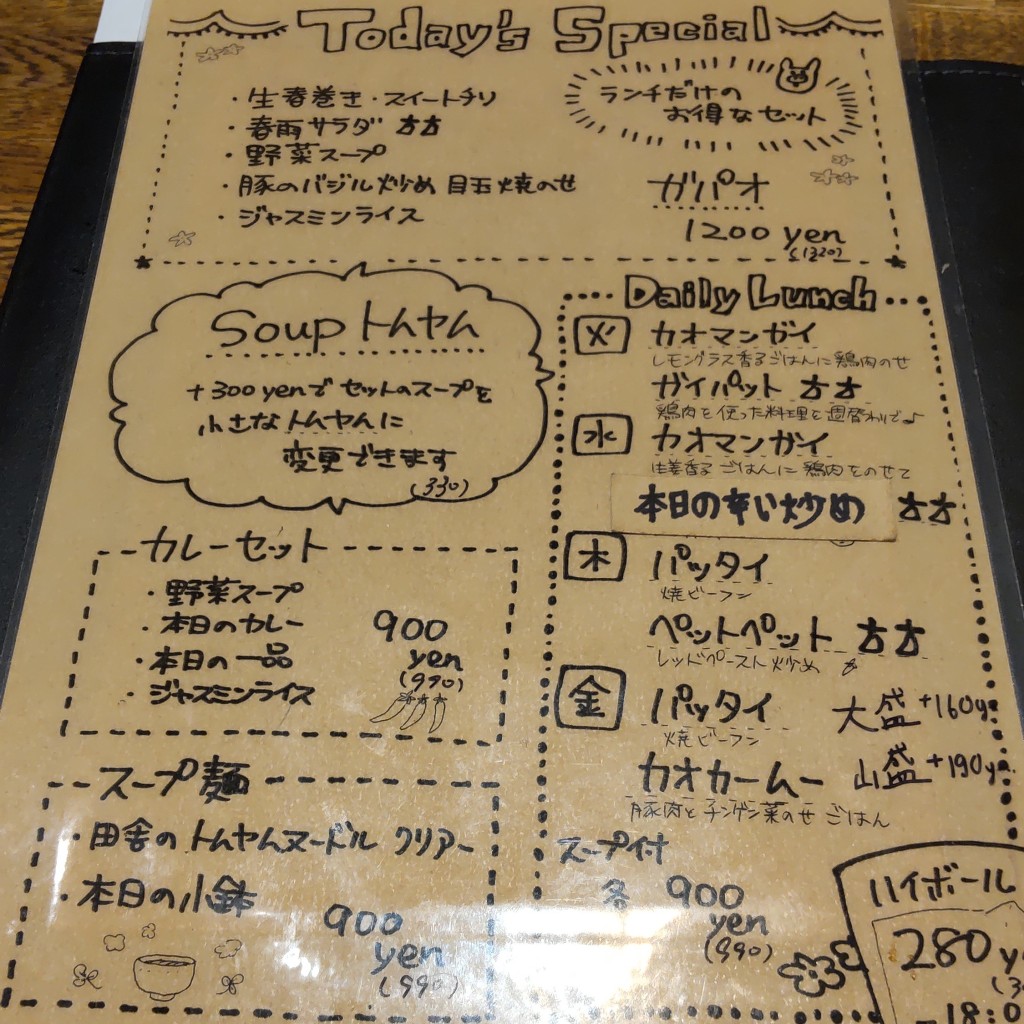 Today's Special
・生春巻き・スイートチリ
・春雨サラダ
・野菜スープ
・豚のバジル炒め 目玉焼のせ
・ジャスミンライス
ランチだけの
お得なセット
ガパオ
1200 yen
(1320)
Soup トムヤム
+300yenで セットのスープを
小さなトムヤムに
変更できます
(330)
カレーセット
・野菜スープ
・本日のカレー
・本日の一品
・ジャスミンライス
900
yen
(990)
スープ麺
・田舎のトムヤムヌードル クリアー
・本日の小鉢
900
yen
(990)
Daily Lunch
火 カオマンガイ
レモングラス香るごはんに鶏肉のせ
ガイパット
鶏肉を使った料理を週替わりで♪
水 カオマンガイ
生姜香る ごはんに 鶏肉をのせて
本日の辛い炒め
木 パッタイ
焼ビーフン
ペットペット
レッドペースト炒め
金 パッタイ
焼ビーフン
大盛+160y
山盛+190y
カオカームー
豚肉とチンゲン菜のせ ごはん
スープ付
各 900
yen
(990)
ハイボール
280 y
18:0